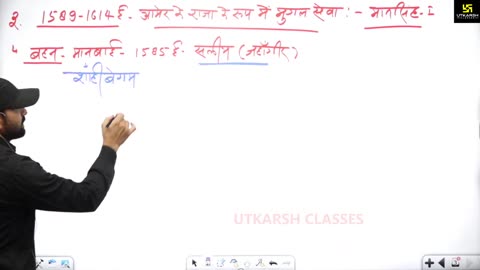 2. 1589-1614 ई. आमेर के राजा के रूप में मुगल सेवा :- मानसिंह-I
↳ बहन- मानबाई- 1585 ई. सलीम (जहाँगीर)
शाही बेगम
UTKARSH CLASSES